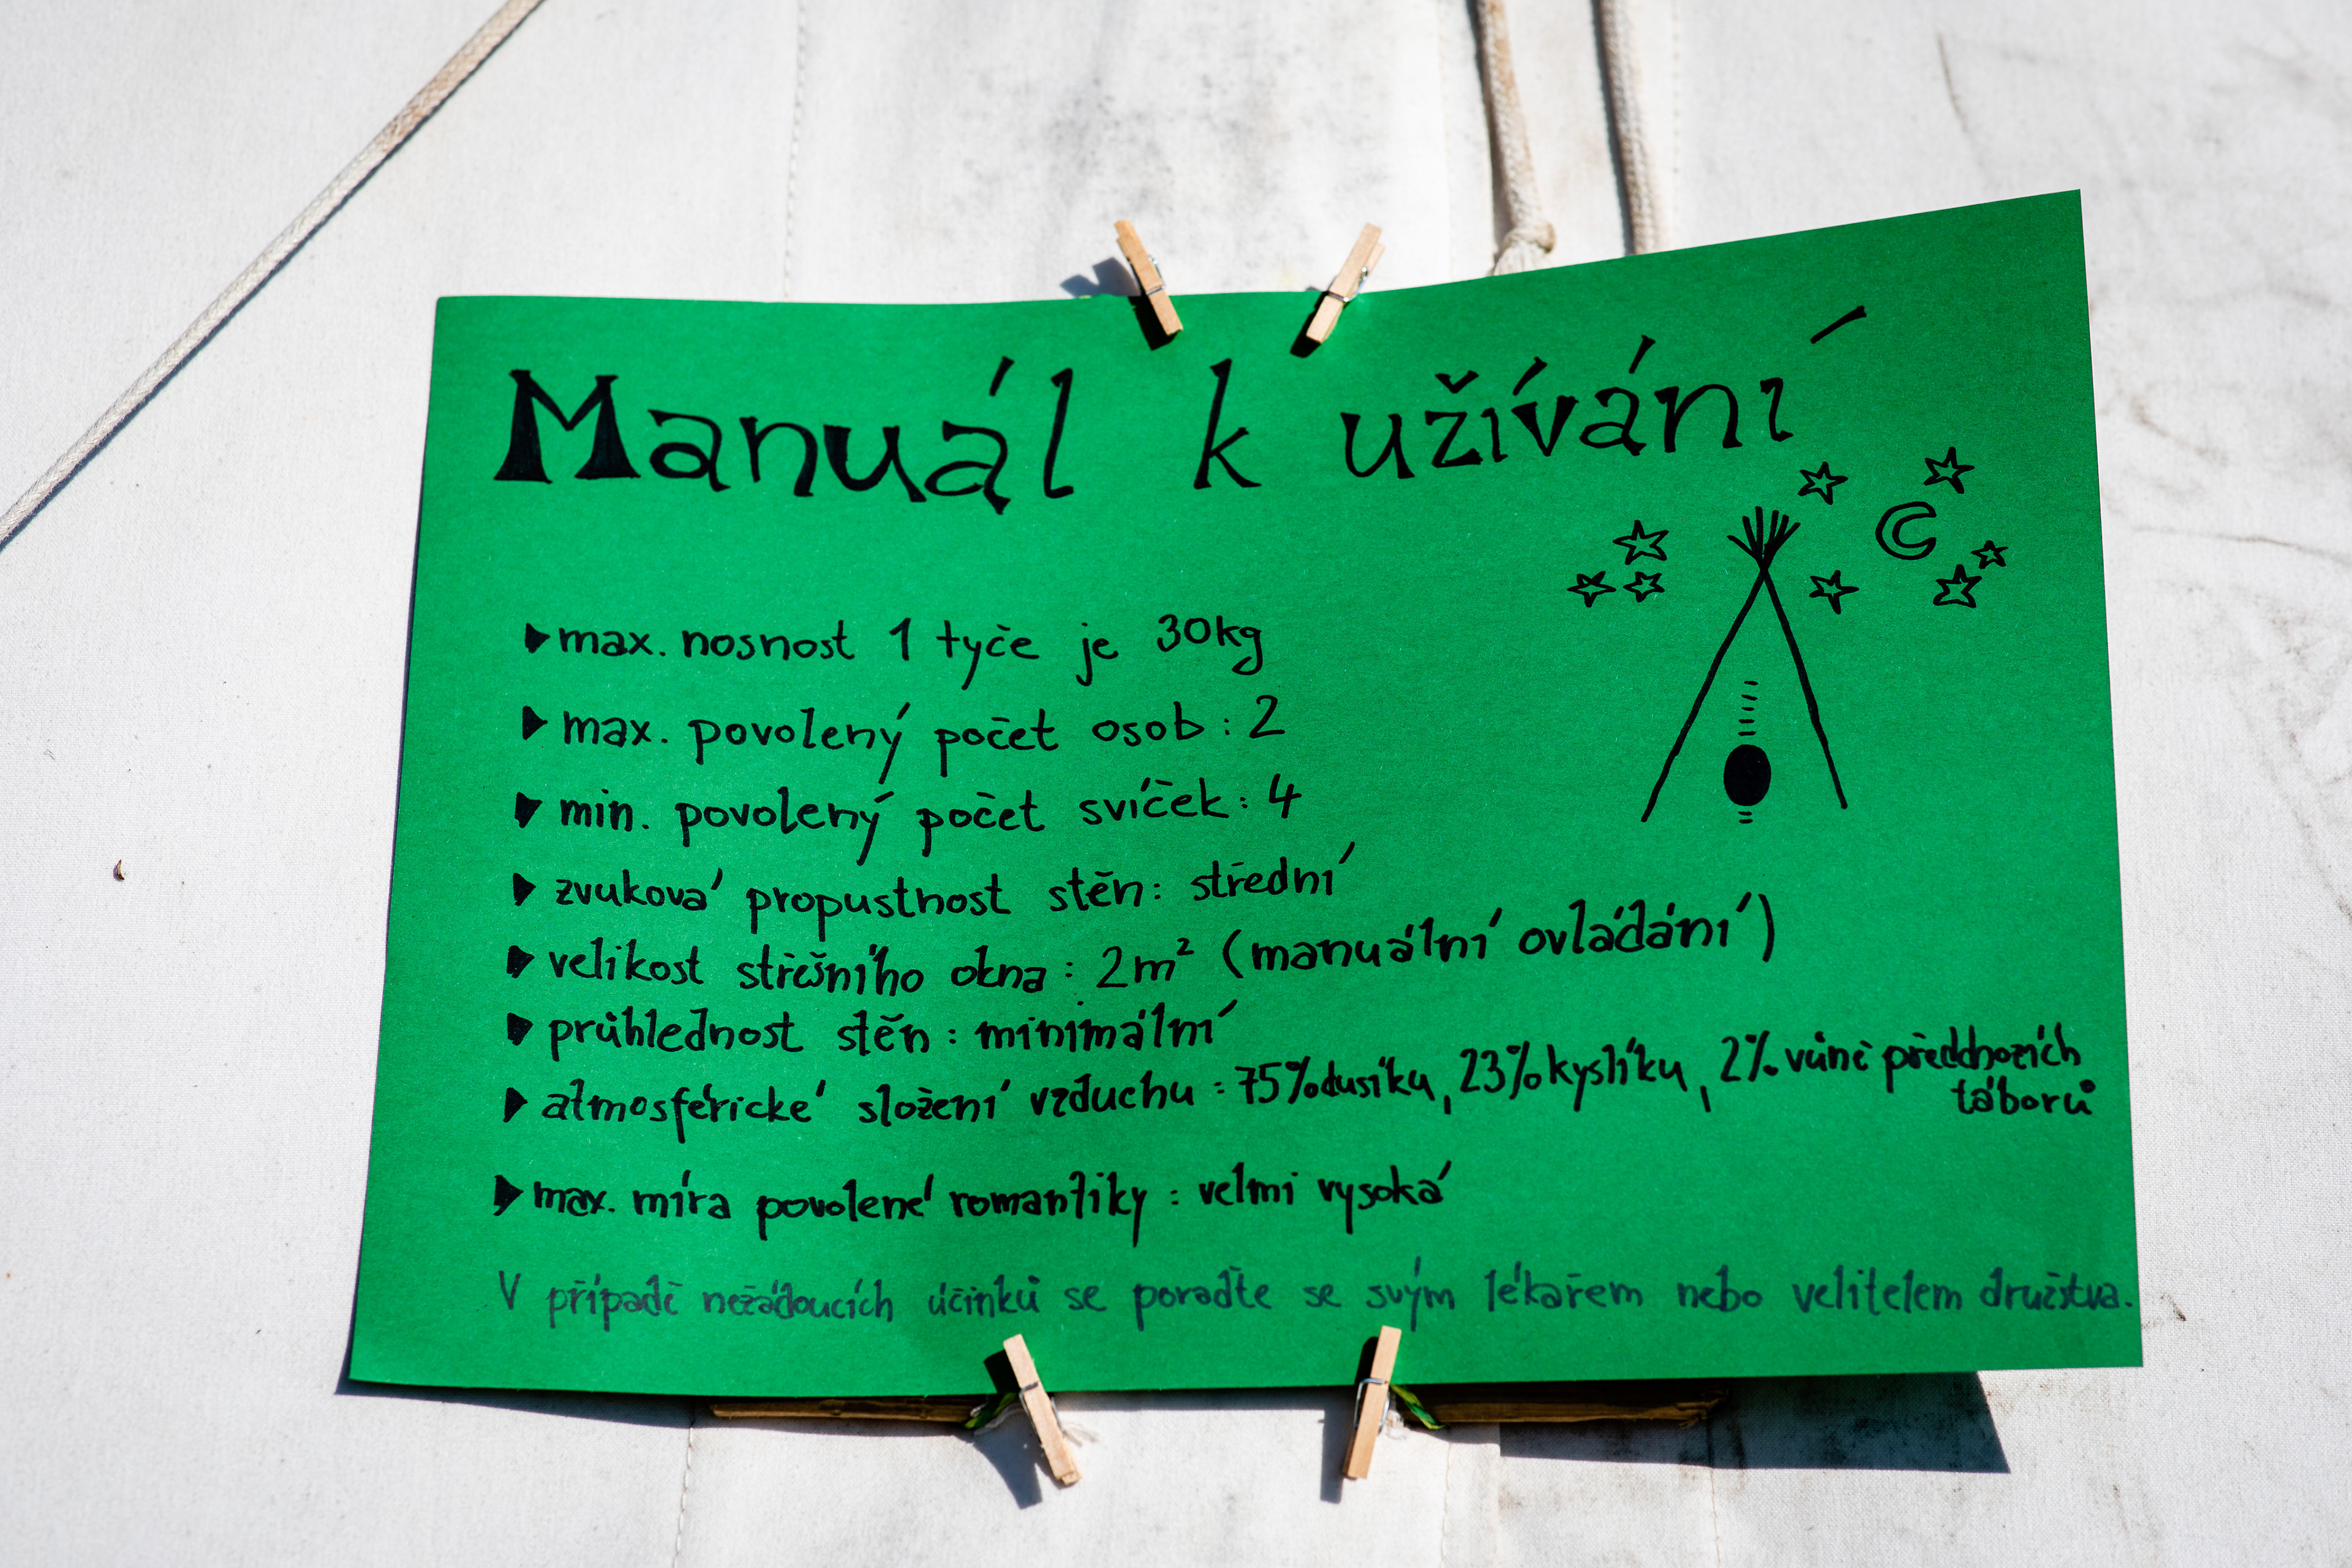 Manuál k užívání
max. nosnost 1 tyče je 30kg
max. povolený počet osob: 2
min. povolený počet svíček: 4
zvuková propustnost stěn: střední
velikost střešního okna: 2m² (manuální ovládání)
průhlednost stěn: minimální
atmosférické složení vzduchu: 75% dusíku, 23% kyslíku, 2% vůně předchozích
táborů
max. míra povolené romantiky: velmi vysoká
V případě nežádoucích účinků se poraďte se svým lékařem nebo velitelem družstva.